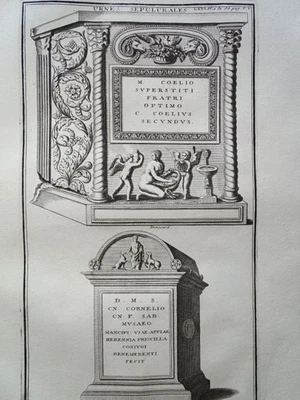 URNES SEPULCRALES
M. COELIO
SUPERSTITI
FRATRI
OPTIMO
C. COELIUS
SECUNDUS.
D. M. S.
CN. CORNELIO
CN. F. SAB.
MUSAEO
MANCIPI VIAE APPIAE
HERENNIA PRISCILLA
CONIUGI
BENEMERENTI
FECIT